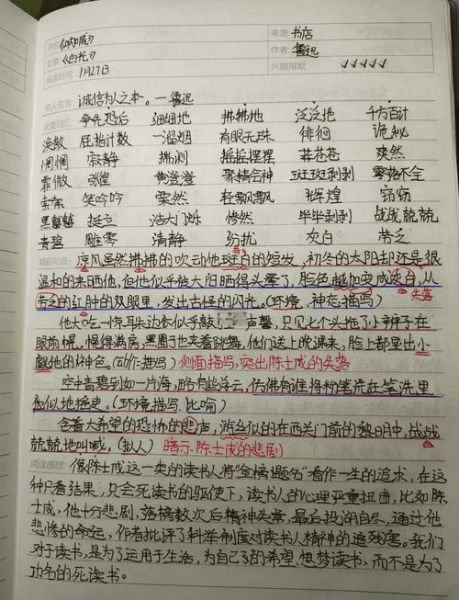 书名:《呐喊》 来源:书店
文章:《白光》 作者:鲁迅
阅读时间:1月27日 兴趣指数 ✓✓✓✓✓
名人名言:诚信为人之本。—鲁迅
优美词汇: 争先恐后 细细地 拂拂地 泛泛地 千方百计
涣散 屈指计数 一溜烟 有眼无珠 徘徊 诡秘
惘惘 寂静 揣测 摇摇摆摆 莽苍苍 爽然
霏微 狭徨 黄澄澄 聚精会神 斑斑剥剥 零铪不全
索索 笑吟吟 栗然 轻飘飘 辉煌 窈窈
黑魆魆 挺立 浩大闪烁 惨然 毕毕剥剥 战战兢兢
青碧 雕零 清静 纷扰 灰白 带乏
精彩句段: 凉风虽然拂拂的吹动他斑白的短发,初冬的太阳却还是很
温和的来晒他。但他似乎被太阳晒得头晕了,脸色越加变成灰白,从
劳乏的红肿的双眼里,发出古怪的闪光。(环境、神态描写)
失落
他大吃一惊,耳朵边似乎敲了一声磬,只见七个头拖了小辫子在
眼前幌,幌得满房,黑圈子也夹着跳舞。他们送上晚课来,脸上都显出小
觑他的神色。(动作描写)侧面描写,突出陈士成的失落
空中青碧到如一片海,略有些浮云,仿佛有谁将粉笔洗在笔洗里
似的摇曳。(环境描写、比喻)
含着大希望的恐怖的悲声,游丝似的在西关门前的黎明中,战战
兢兢地叫喊。(拟人)暗示陈士成的悲剧
阅读感想: 像陈士成这一类的读书人将“金榜题名”看作一生的追求,在这
种只看结果,只会死读书的驱使下,读书人的心理严重扭曲,比如陈
士成,他十分悲剧,落榜数次后精神失常,最后投湖自尽,通过他
悲惨的命运,作者批评了科举制度对读书人精神的迫死害。我们
对于读书,是为了运用于生活,为自己的希望、想梦读书,而不是为了
功名的死读书。